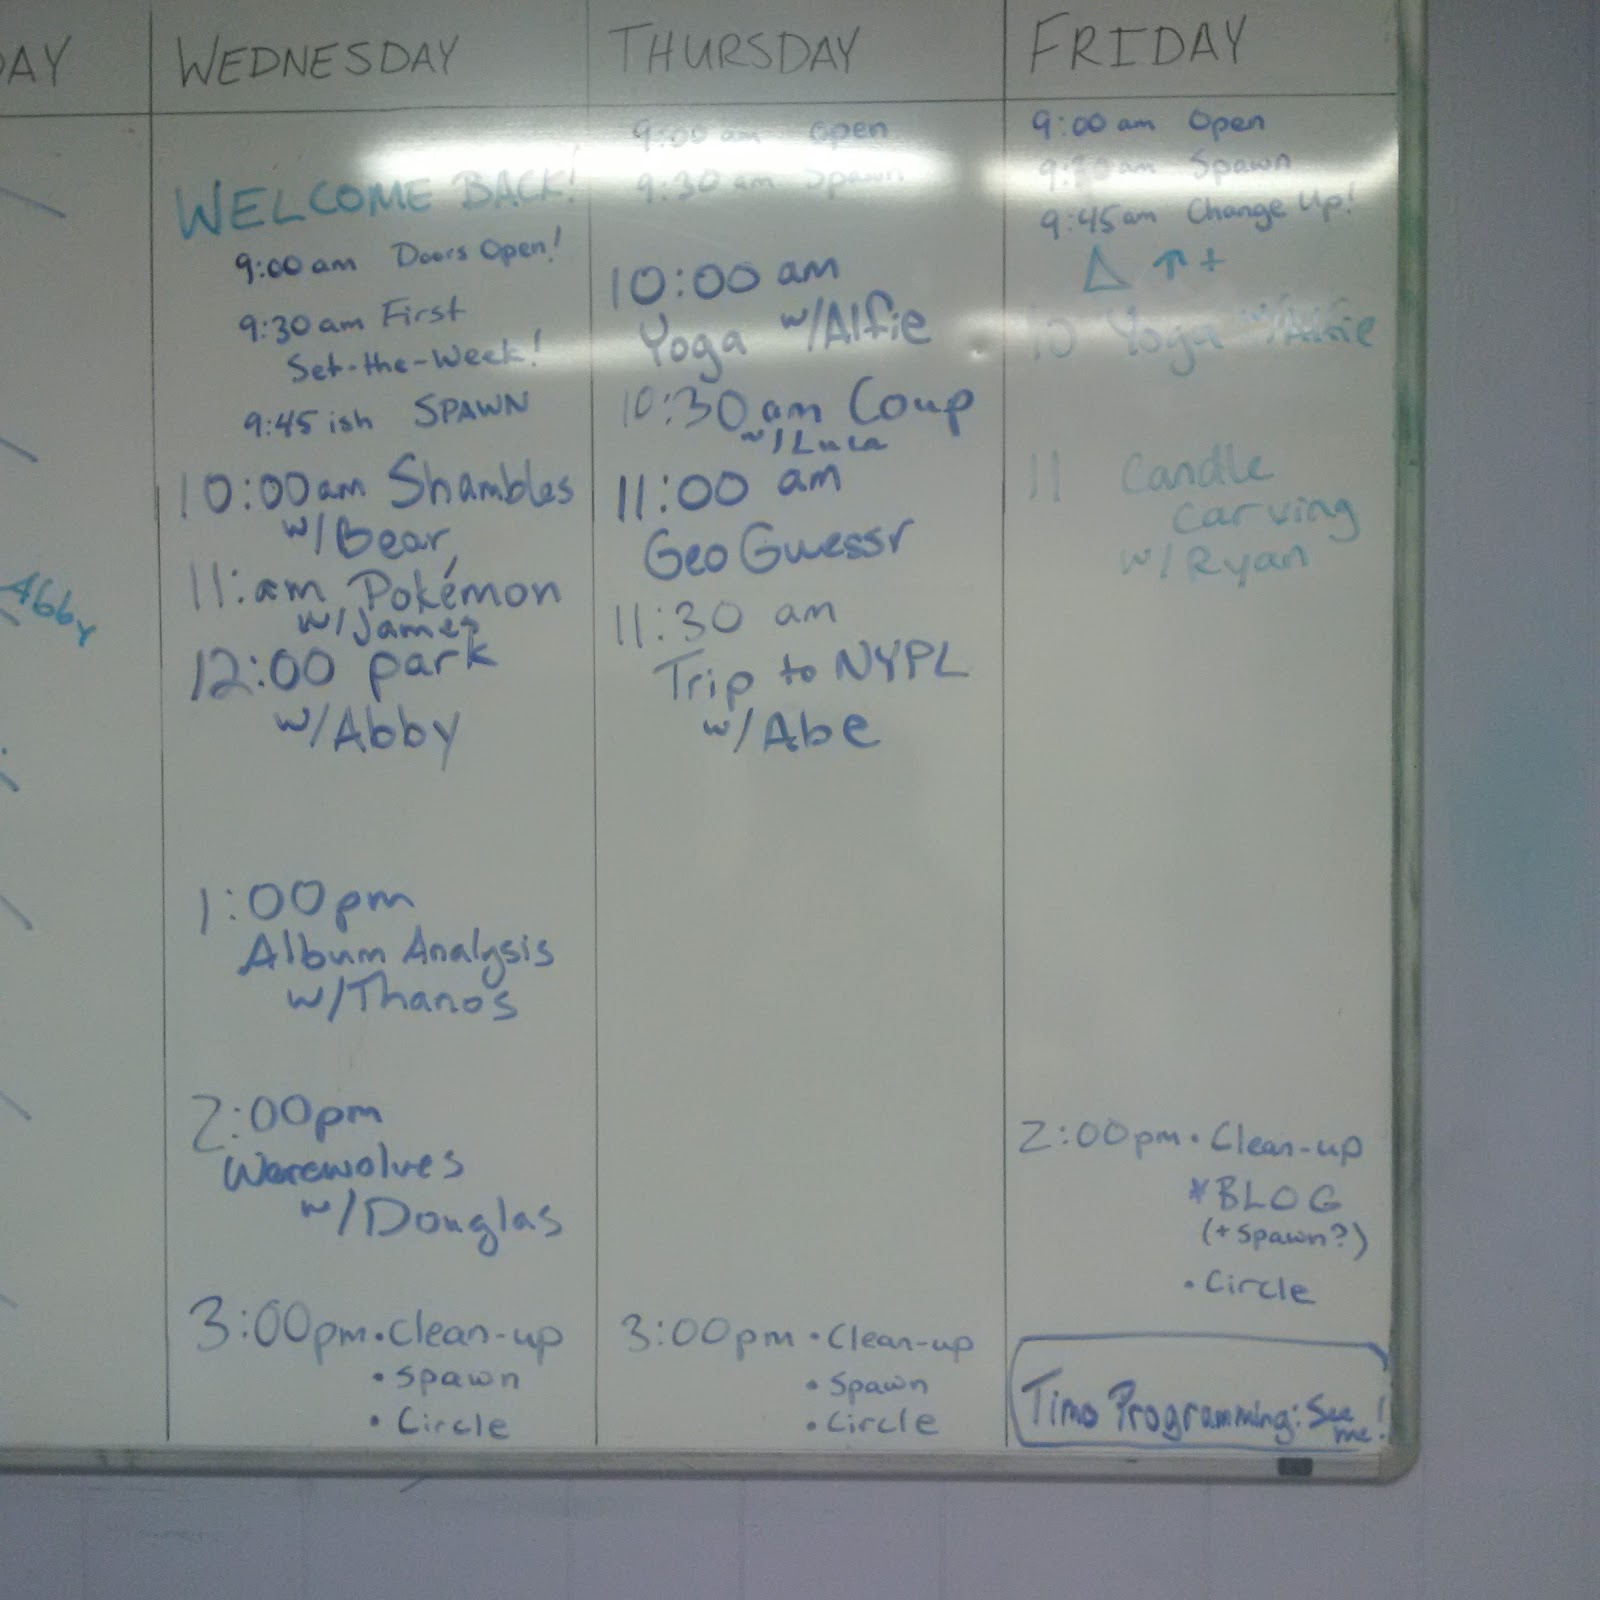 DAY
Abby
WEDNESDAY
WELCOME BACK!
9:00 am Doors Open!
9:30 am First
Set-the-Week!
9:45 ish SPAWN
10:00am Shambles
w/Bear
11:am Pokémon
w/James
12:00 park
w/Abby
1:00pm
Album Analysis
w/Thanos
2:00pm
Warewolves
w/Douglas
3:00pm • Clean-up
• Spawn
• Circle
THURSDAY
9:00 am Open
9:30 am Spawn
10:00 am
Yoga w/Alfie
10:30 am Coup
w/Luca
11:00 am
Geo Guessr
11:30 am
Trip to NYPL
w/Abe
3:00pm • Clean-up
• Spawn
• Circle
FRIDAY
9:00 am Open
9:30am Spawn
9:45am Change Up!
△ ↑ +
10 Yoga w/Alfie
11 Candle
Carving
w/Ryan
2:00pm • Clean-up
*BLOG
(+ Spawn?)
• Circle
Timo Programming: See
me!